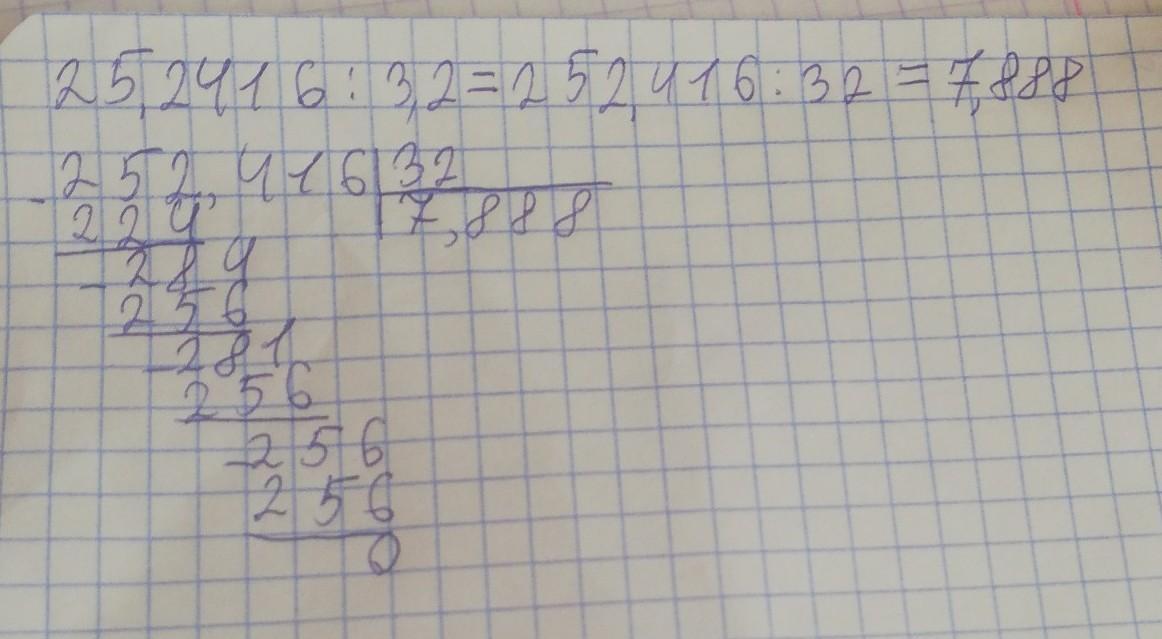 25,2416 : 3,2 = 252,416 : 32 = 7,888
- 252,416 | 32
224 | 7,888
- 284
256
- 281
256
- 256
256
0